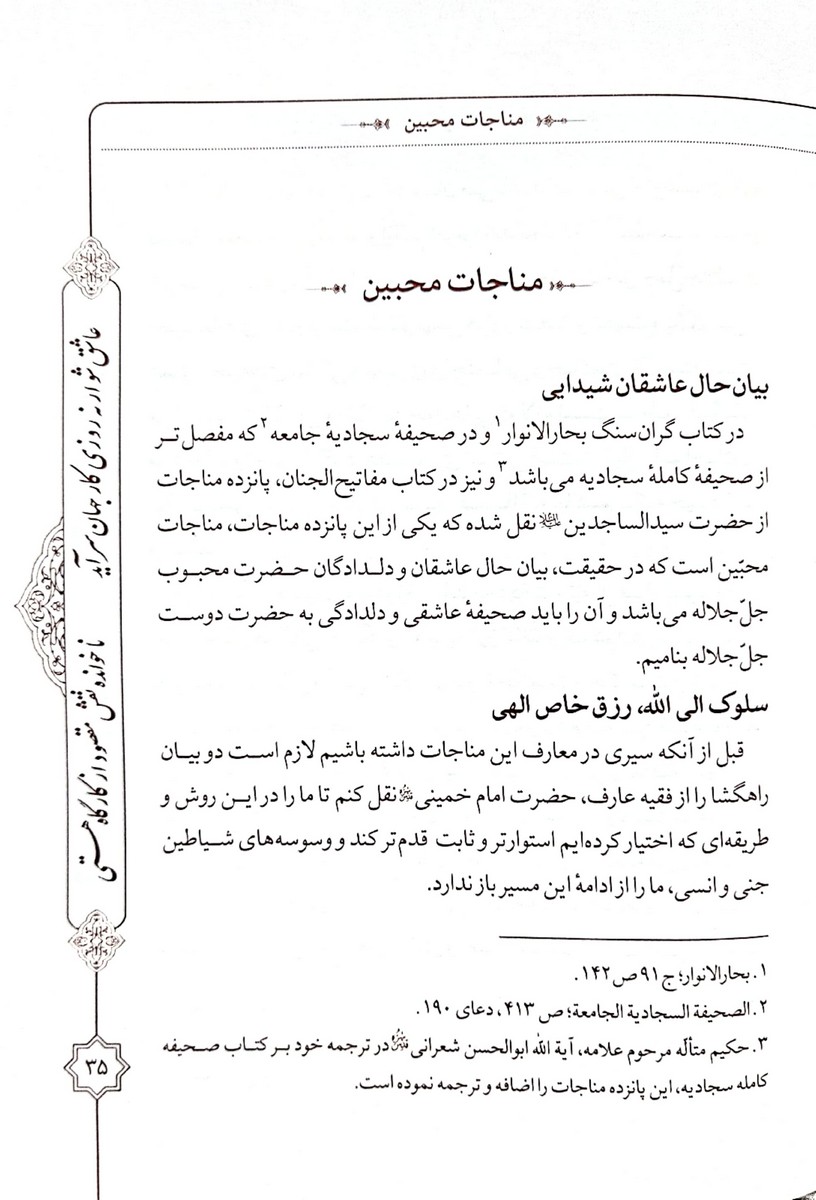 مناجات محبین
مناجات محبین
بیان حال عاشقان شیدایی
در کتاب گران‌سنگ بحارالانوار۱ و در صحیفهٔ سجادیهٔ جامعه۲ که مفصل تر
از صحیفهٔ کاملهٔ سجادیه می‌باشد۳ و نیز در کتاب مفاتیح‌الجنان، پانزده مناجات
از حضرت سیدالساجدین نقل شده که یکی از این پانزده مناجات، مناجات
محبّین است که در حقیقت، بیان حال عاشقان و دلدادگان حضرت محبوب
جلّ‌جلاله می‌باشد و آن را باید صحیفهٔ عاشقی و دلدادگی به حضرت دوست
جلّ‌جلاله بنامیم.
سلوک الی الله، رزق خاص الهی
قبل از آنکه سیری در معارف این مناجات داشته باشیم لازم است دو بیان
راهگشا را از فقیه عارف، حضرت امام خمینی نقل کنم تا ما را در این روش و
طریقه‌ای که اختیار کرده‌ایم استوارتر و ثابت قدم‌تر کند و وسوسه‌های شیاطین
جنی و انسی، ما را از ادامهٔ این مسیر باز ندارد.
۱. بحارالانوار؛ ج ۹۱ ص ۱۴۲.
۲. الصحیفة السجادیة الجامعة؛ ص ۴۱۳، دعای ۱۹۰.
۳. حکیم متألّه مرحوم علامه، آیة الله ابوالحسن شعرانی در ترجمه خود بر کتاب صحیفه
کامله سجادیه، این پانزده مناجات را اضافه و ترجمه نموده است.
عاشق شو ار نه روزی کار جهان سر آید
ناخوانده نقش مقصود از کارگاه هستی
۳۵